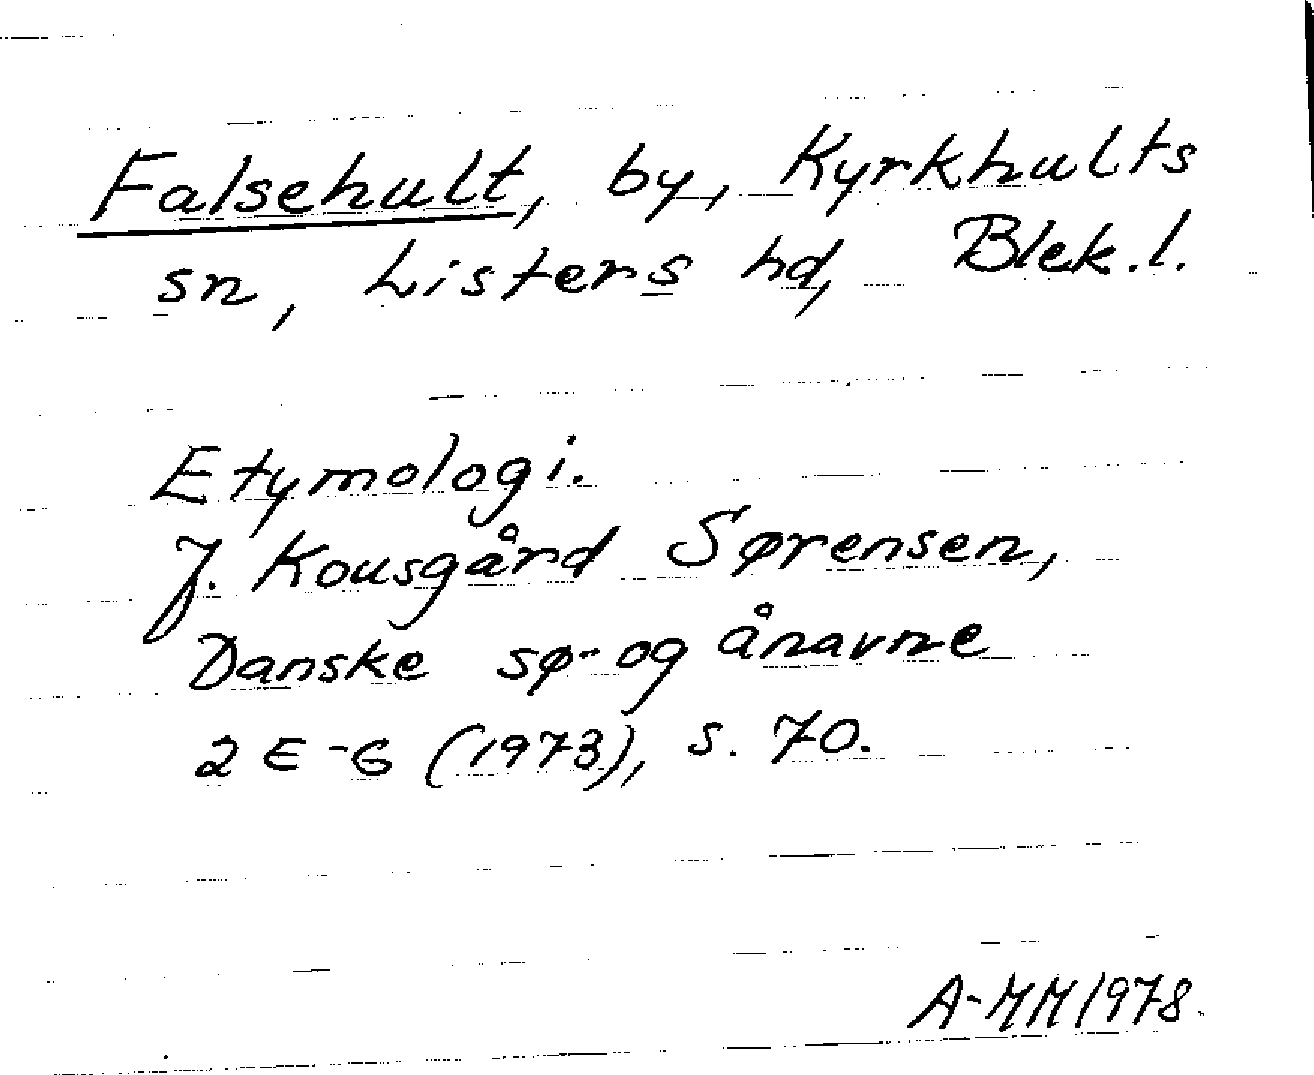 Falsehult, by, Kyrkhults
sn, Listers hd, Blek.l.
Etymologi.
J. Kousgård Sørensen,
Danske sø- og ånavne
2 E-G (1973), s. 70.
A-MM 1978.